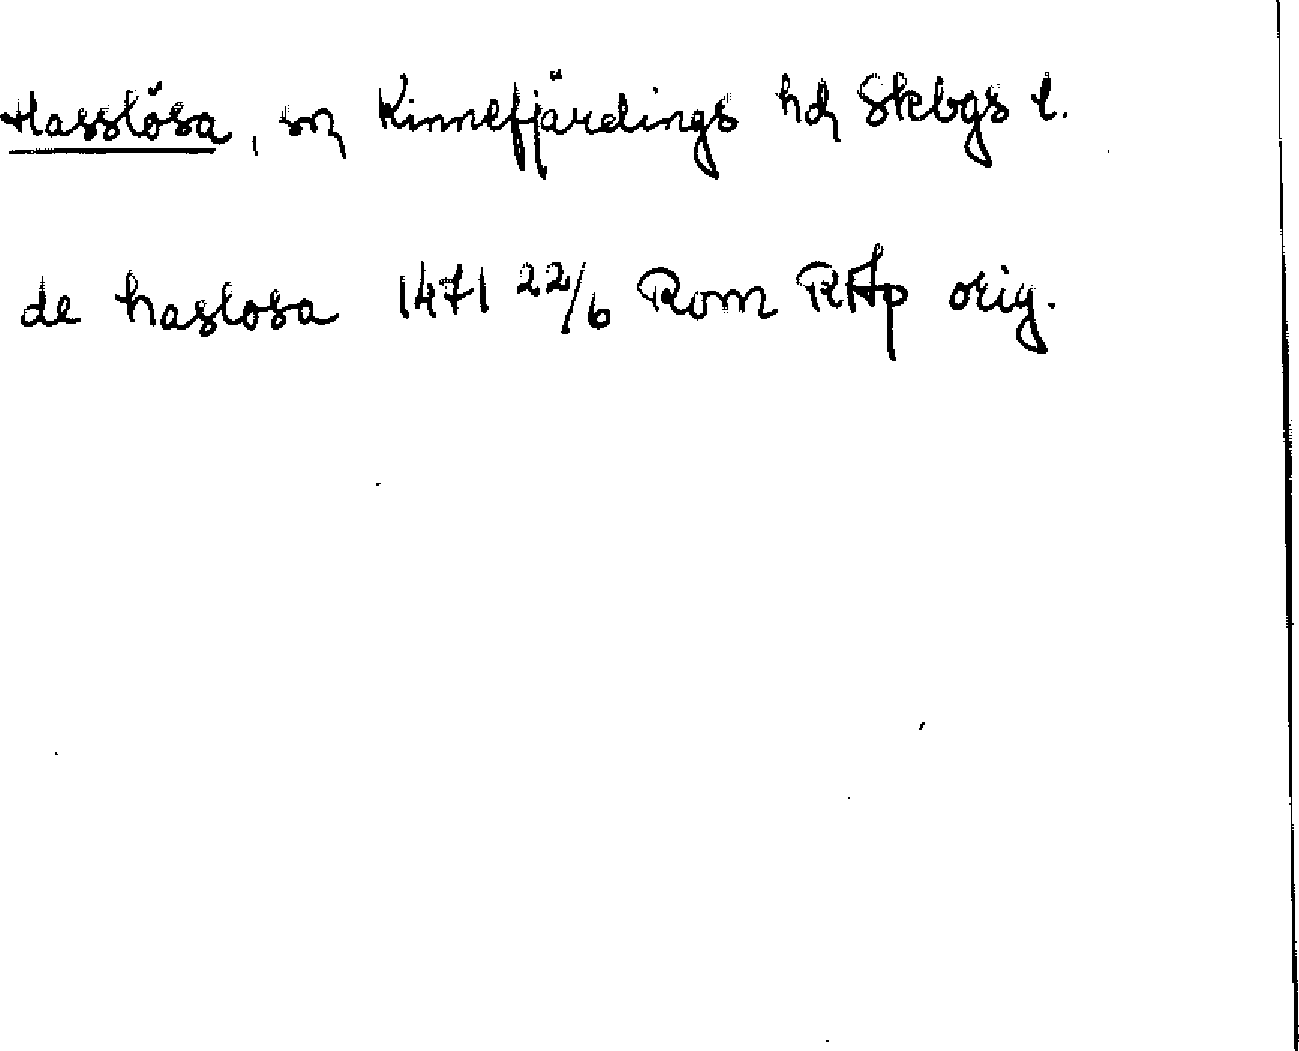 Hasslösa, sn Kinnefjärdings hd Skbgs l.
de haslosa 1471 22/6 Rom RAp orig.